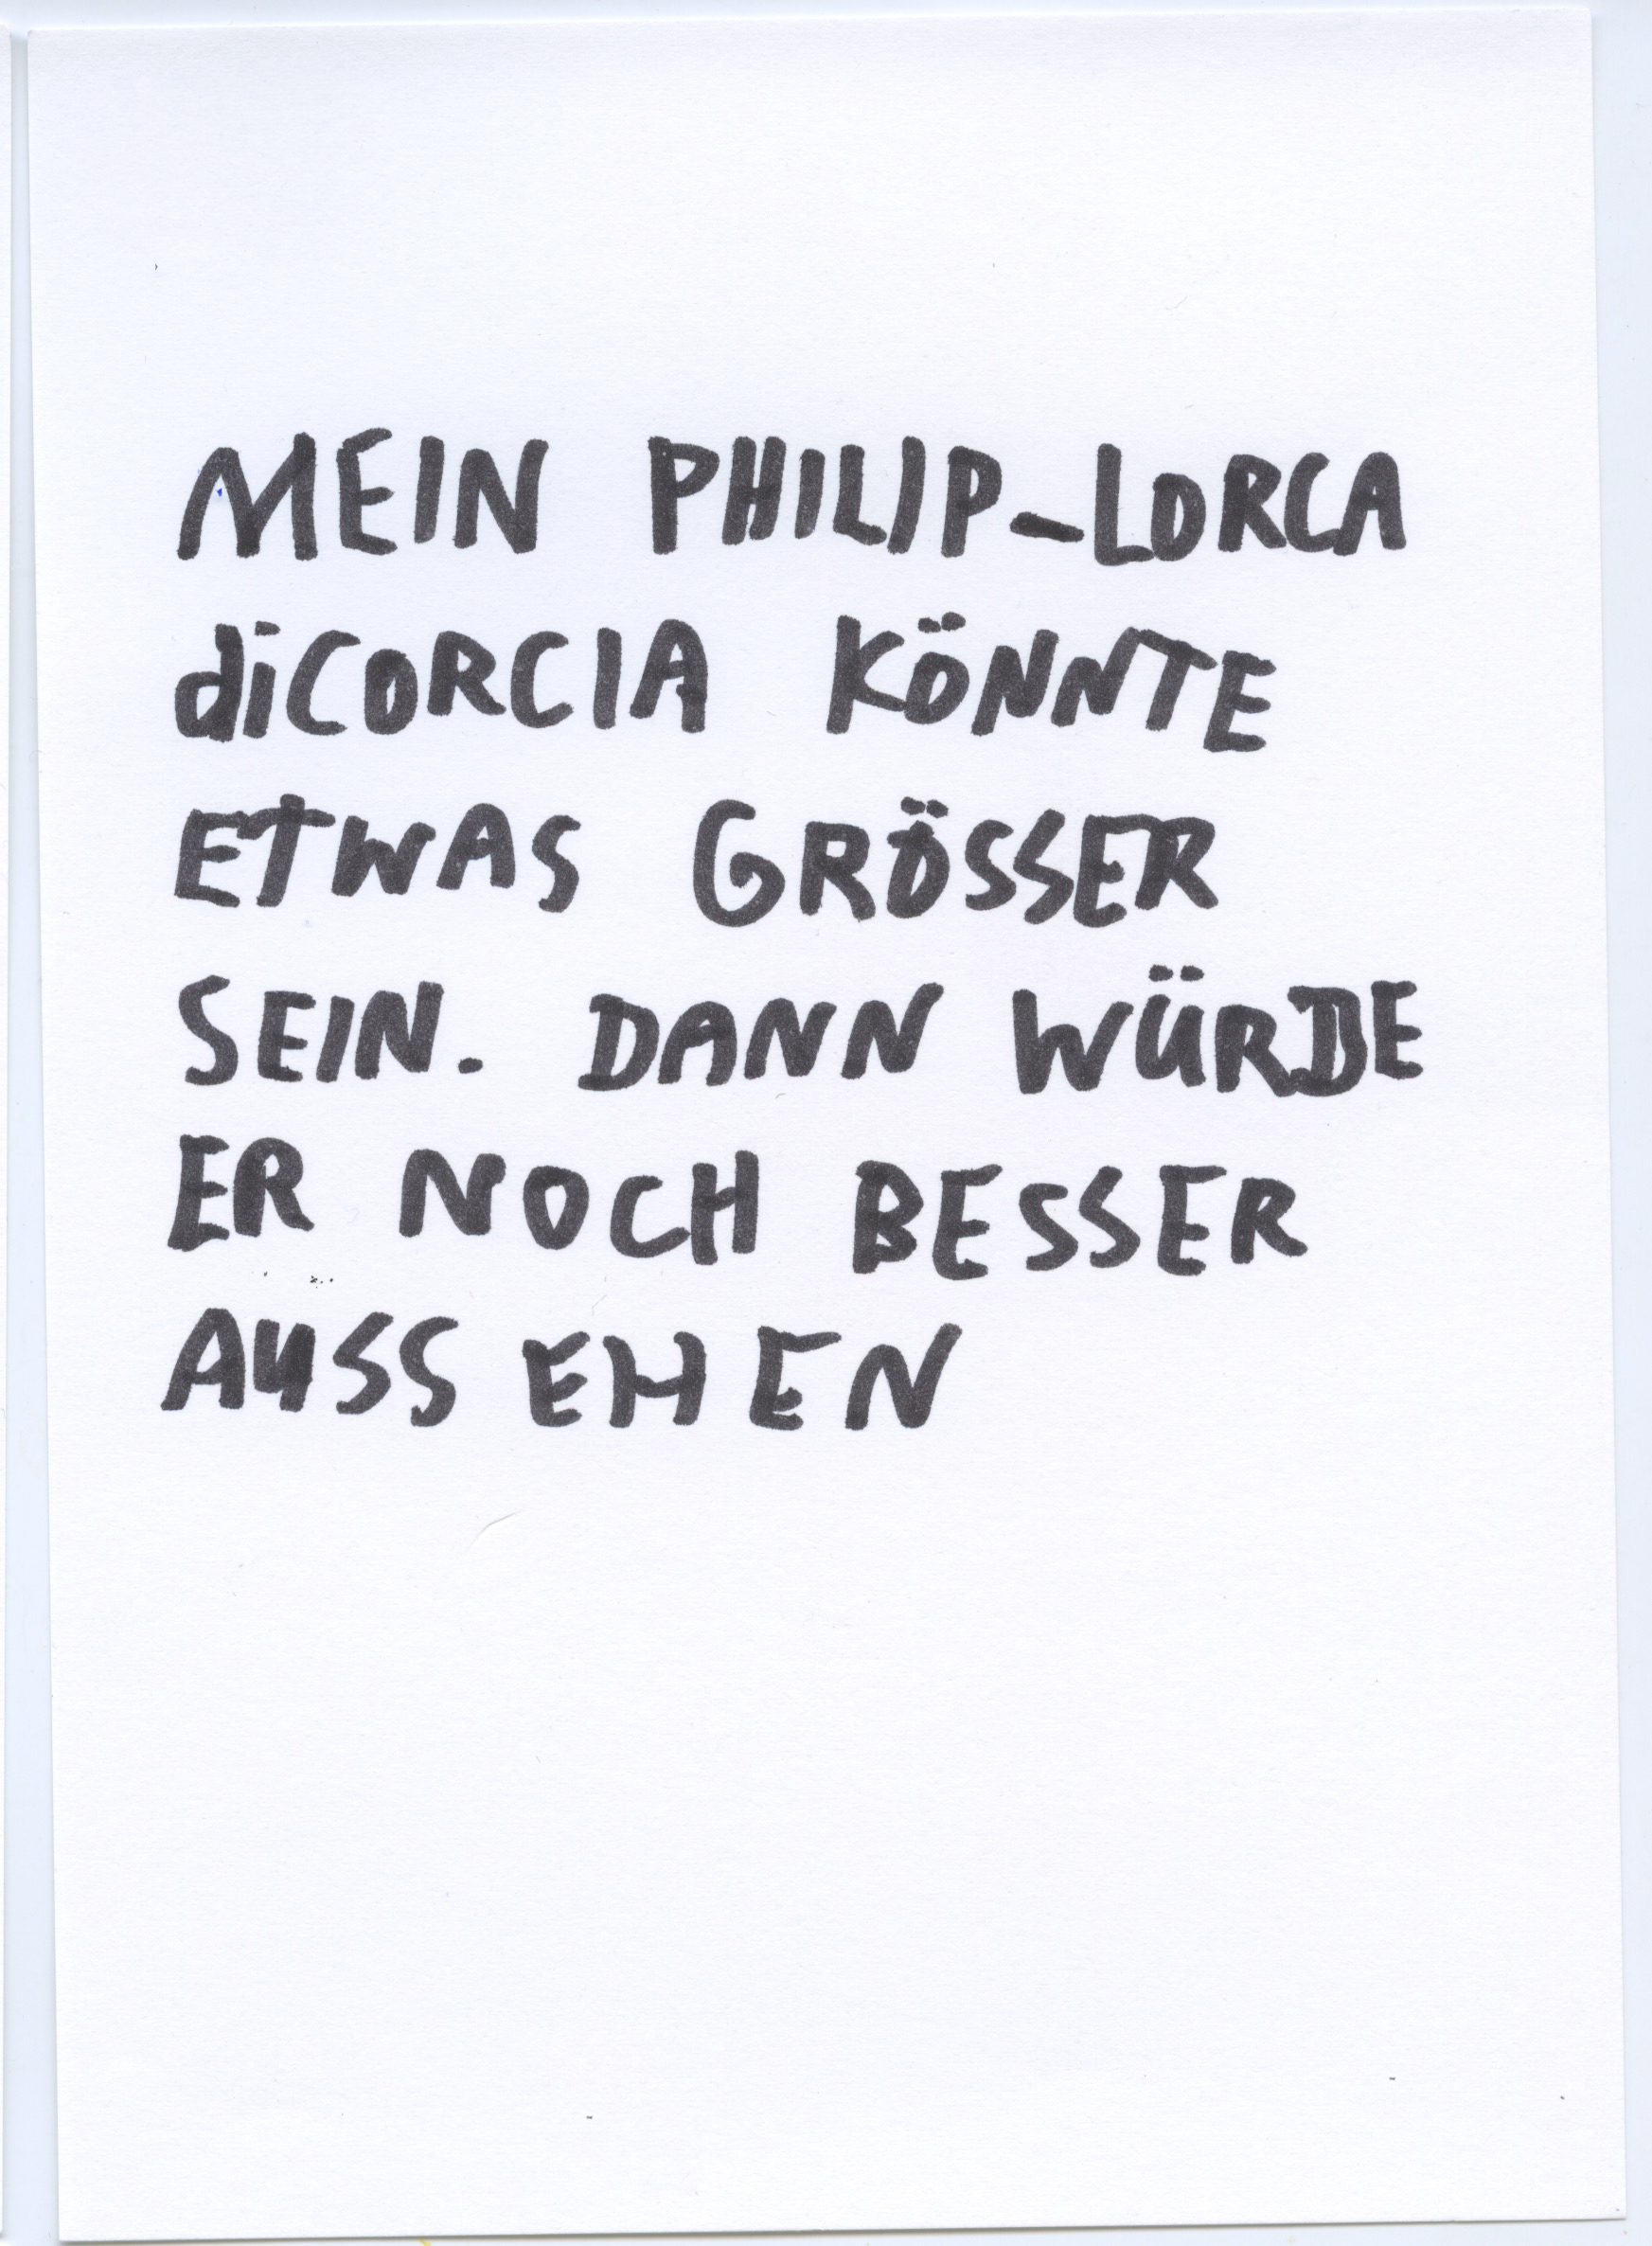 MEIN PHILIP-LORCA
diCORCIA KÖNNTE
ETWAS GRÖSSER
SEIN. DANN WÜRDE
ER NOCH BESSER
AUSSEHEN